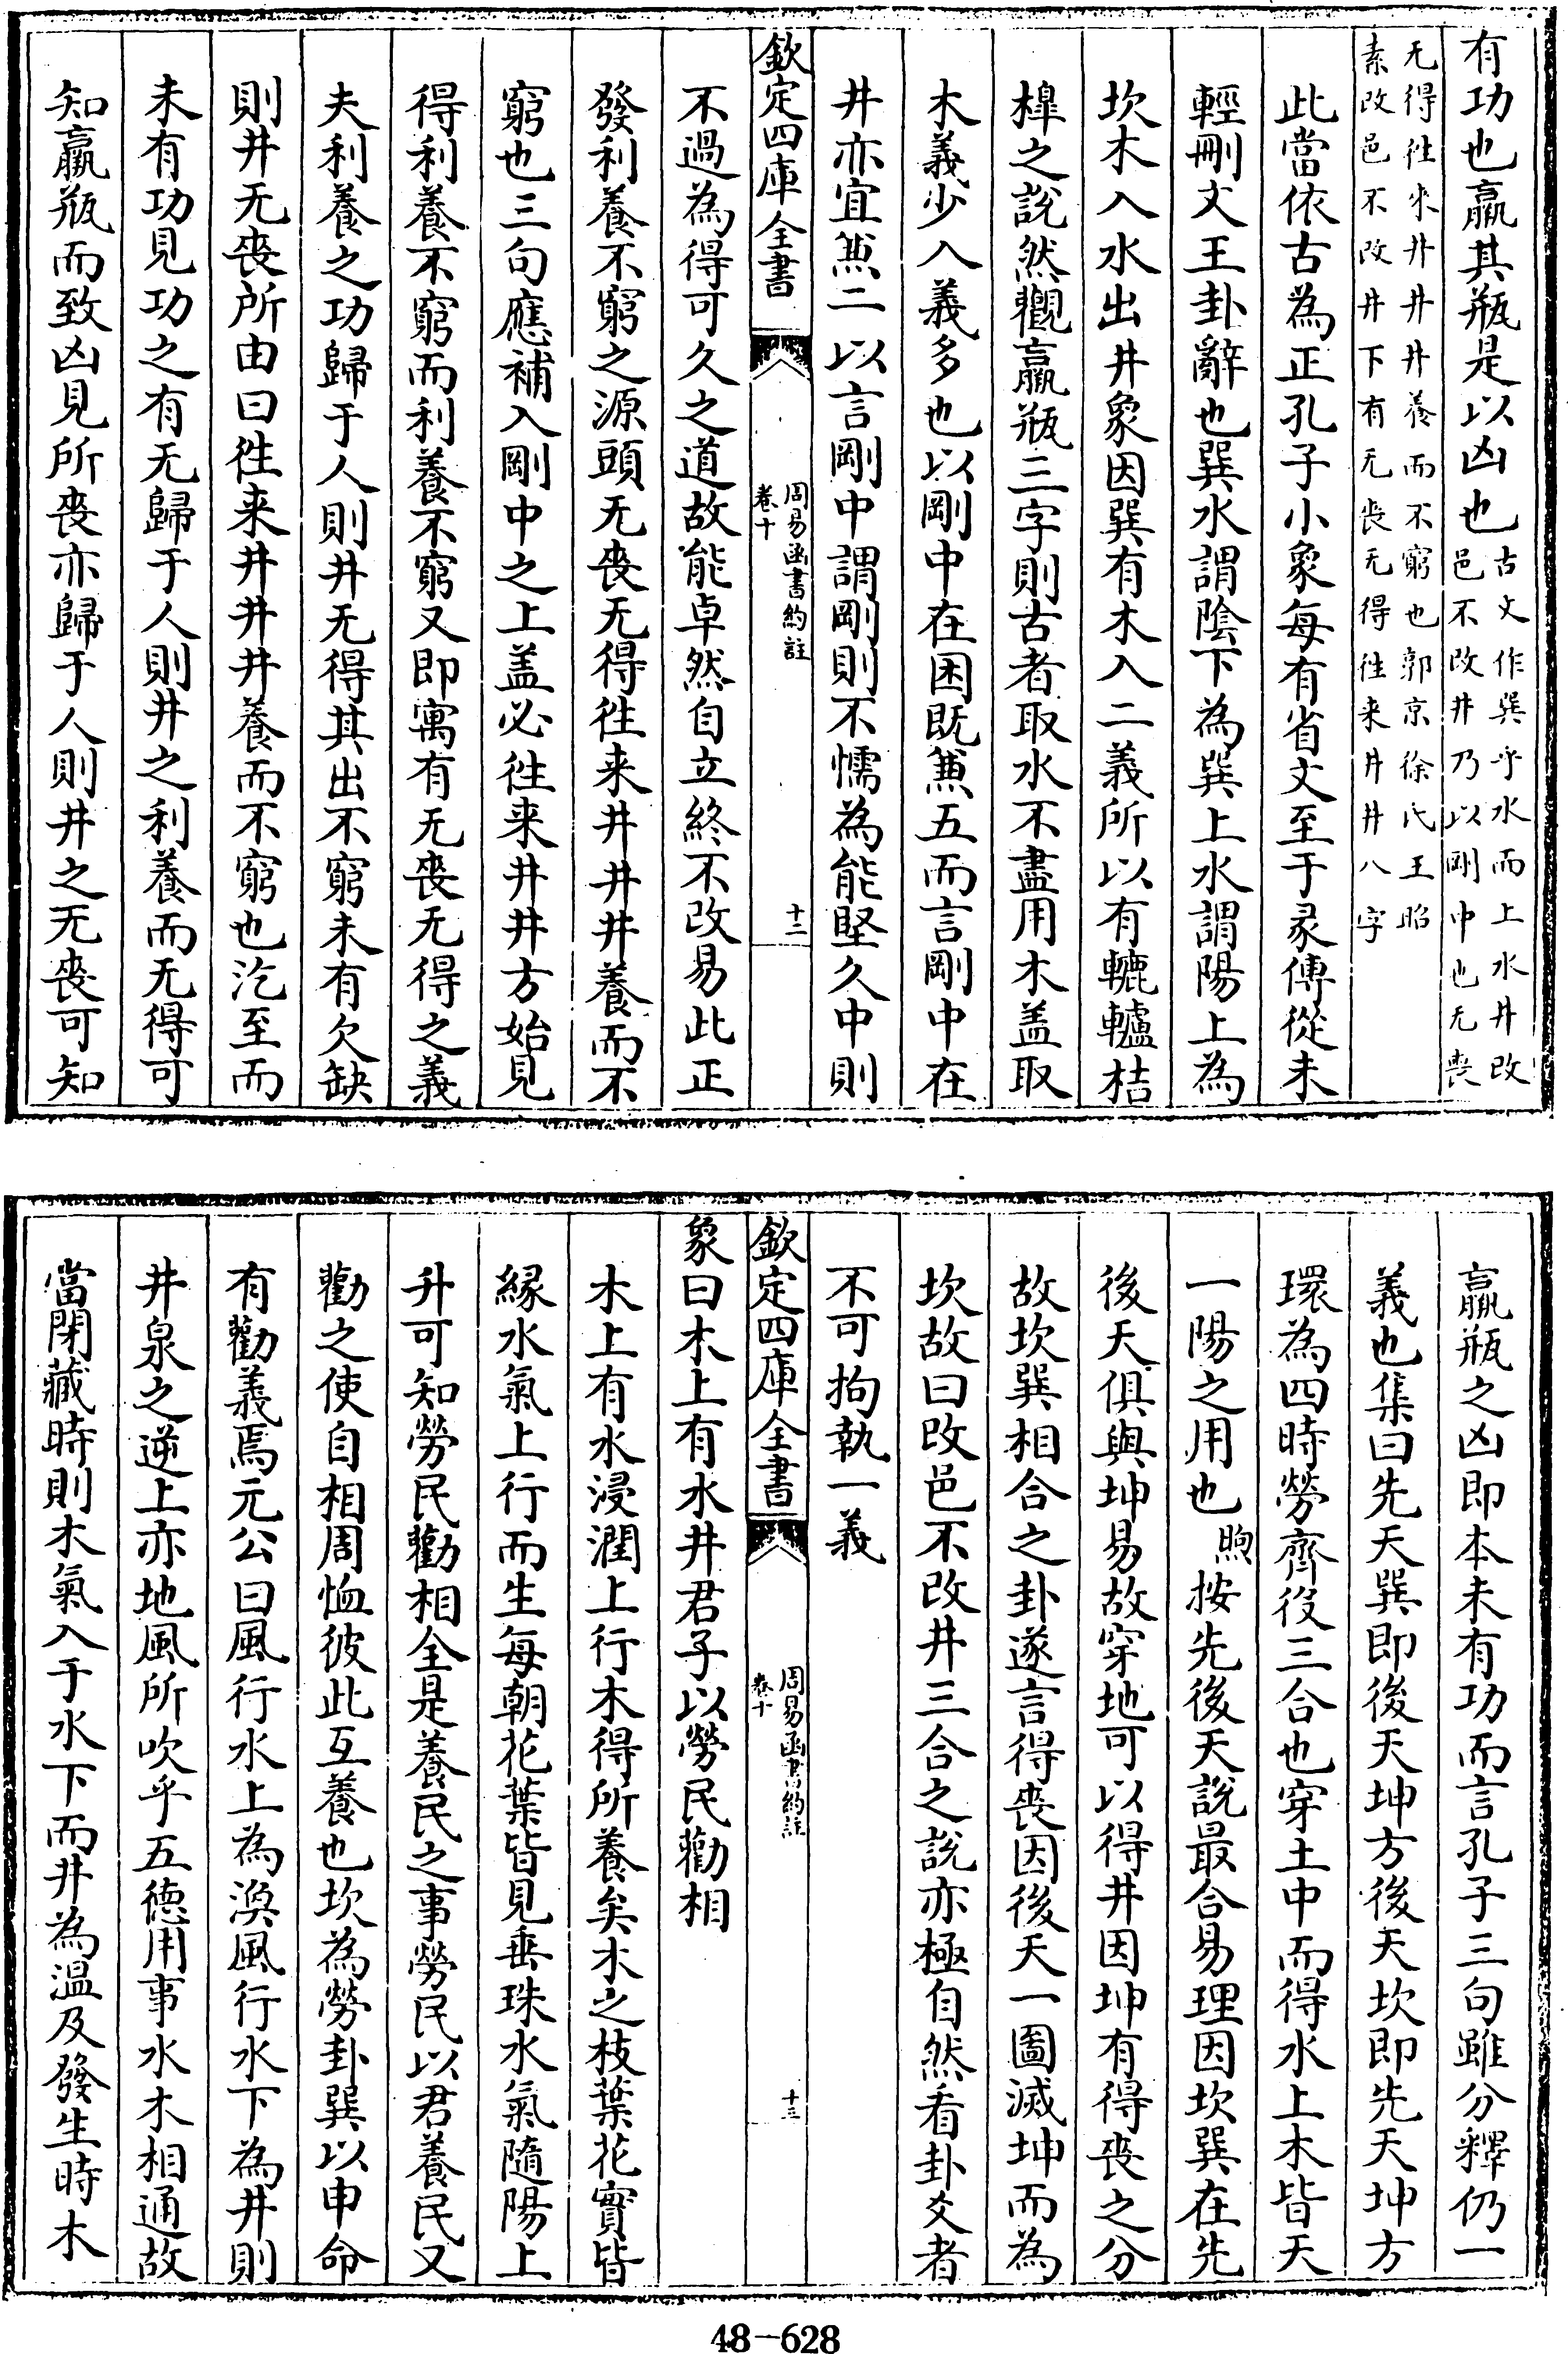 有功也羸其瓶是以凶也
古文作巽乎水而上水井改
邑不改井乃以剛中也无喪
无得徃來井井井養而不窮也郭京徐氏王昭
素改邑不改井下有无喪无得徃来井井八字
此當依古為正孔子小象每有省文至于彖傳從未
輕刪文王卦辭也巽水謂陰下為巽上水謂陽上為
坎木入水出井象因巽有木入二義所以有轆轤桔
槹之說然觀羸瓶三字則古者取水不盡用木盖取
木義少入義多也以剛中在困既兼五而言剛中在
井亦宜兼二以言剛中謂剛則不懦為能堅久中則
欽定四庫全書
周易函書約註
卷十
十二
不過為得可久之道故能卓然自立終不改易此正
發利養不窮之源頭无喪无得徃来井井井養而不
窮也三句應補入剛中之上盖必徃来井井方始見
得利養不窮而利養不窮又即寓有无喪无得之義
夫利養之功歸于人則井无得其出不窮未有欠缺
則井无喪所由曰徃来井井井養而不窮也汔至而
未有功見功之有无歸于人則井之利養而无得可
知羸瓶而致凶見所喪亦歸于人則井之无喪可知
羸瓶之凶即本未有功而言孔子三句雖分釋仍一
義也集曰先天巽即後天坤方後天坎即先天坤方
環為四時勞齊役三合也穿土中而得水上木皆天
一陽之用也煦按先後天說最合易理因坎巽在先
後天俱與坤易故穿地可以得井因坤有得喪之分
故坎巽相合之卦遂言得喪因後天一圖滅坤而為
坎故曰改邑不改井三合之說亦極自然看卦爻者
不可拘執一義
欽定四庫全書
周易函書約註
卷十
十三
象曰木上有水井君子以勞民勸相
木上有水浸潤上行木得所養矣木之枝葉花實皆
緣水氣上行而生每朝花葉皆見垂珠水氣隨陽上
升可知勞民勸相全是養民之事勞民以君養民又
勸之使自相周恤彼此互養也坎為勞卦巽以申命
有勸義焉元公曰風行水上為渙風行水下為井則
井泉之逆上亦地風所吹乎五德用事水木相通故
當閉藏時則木氣入于水下而井為温及發生時木
48-628